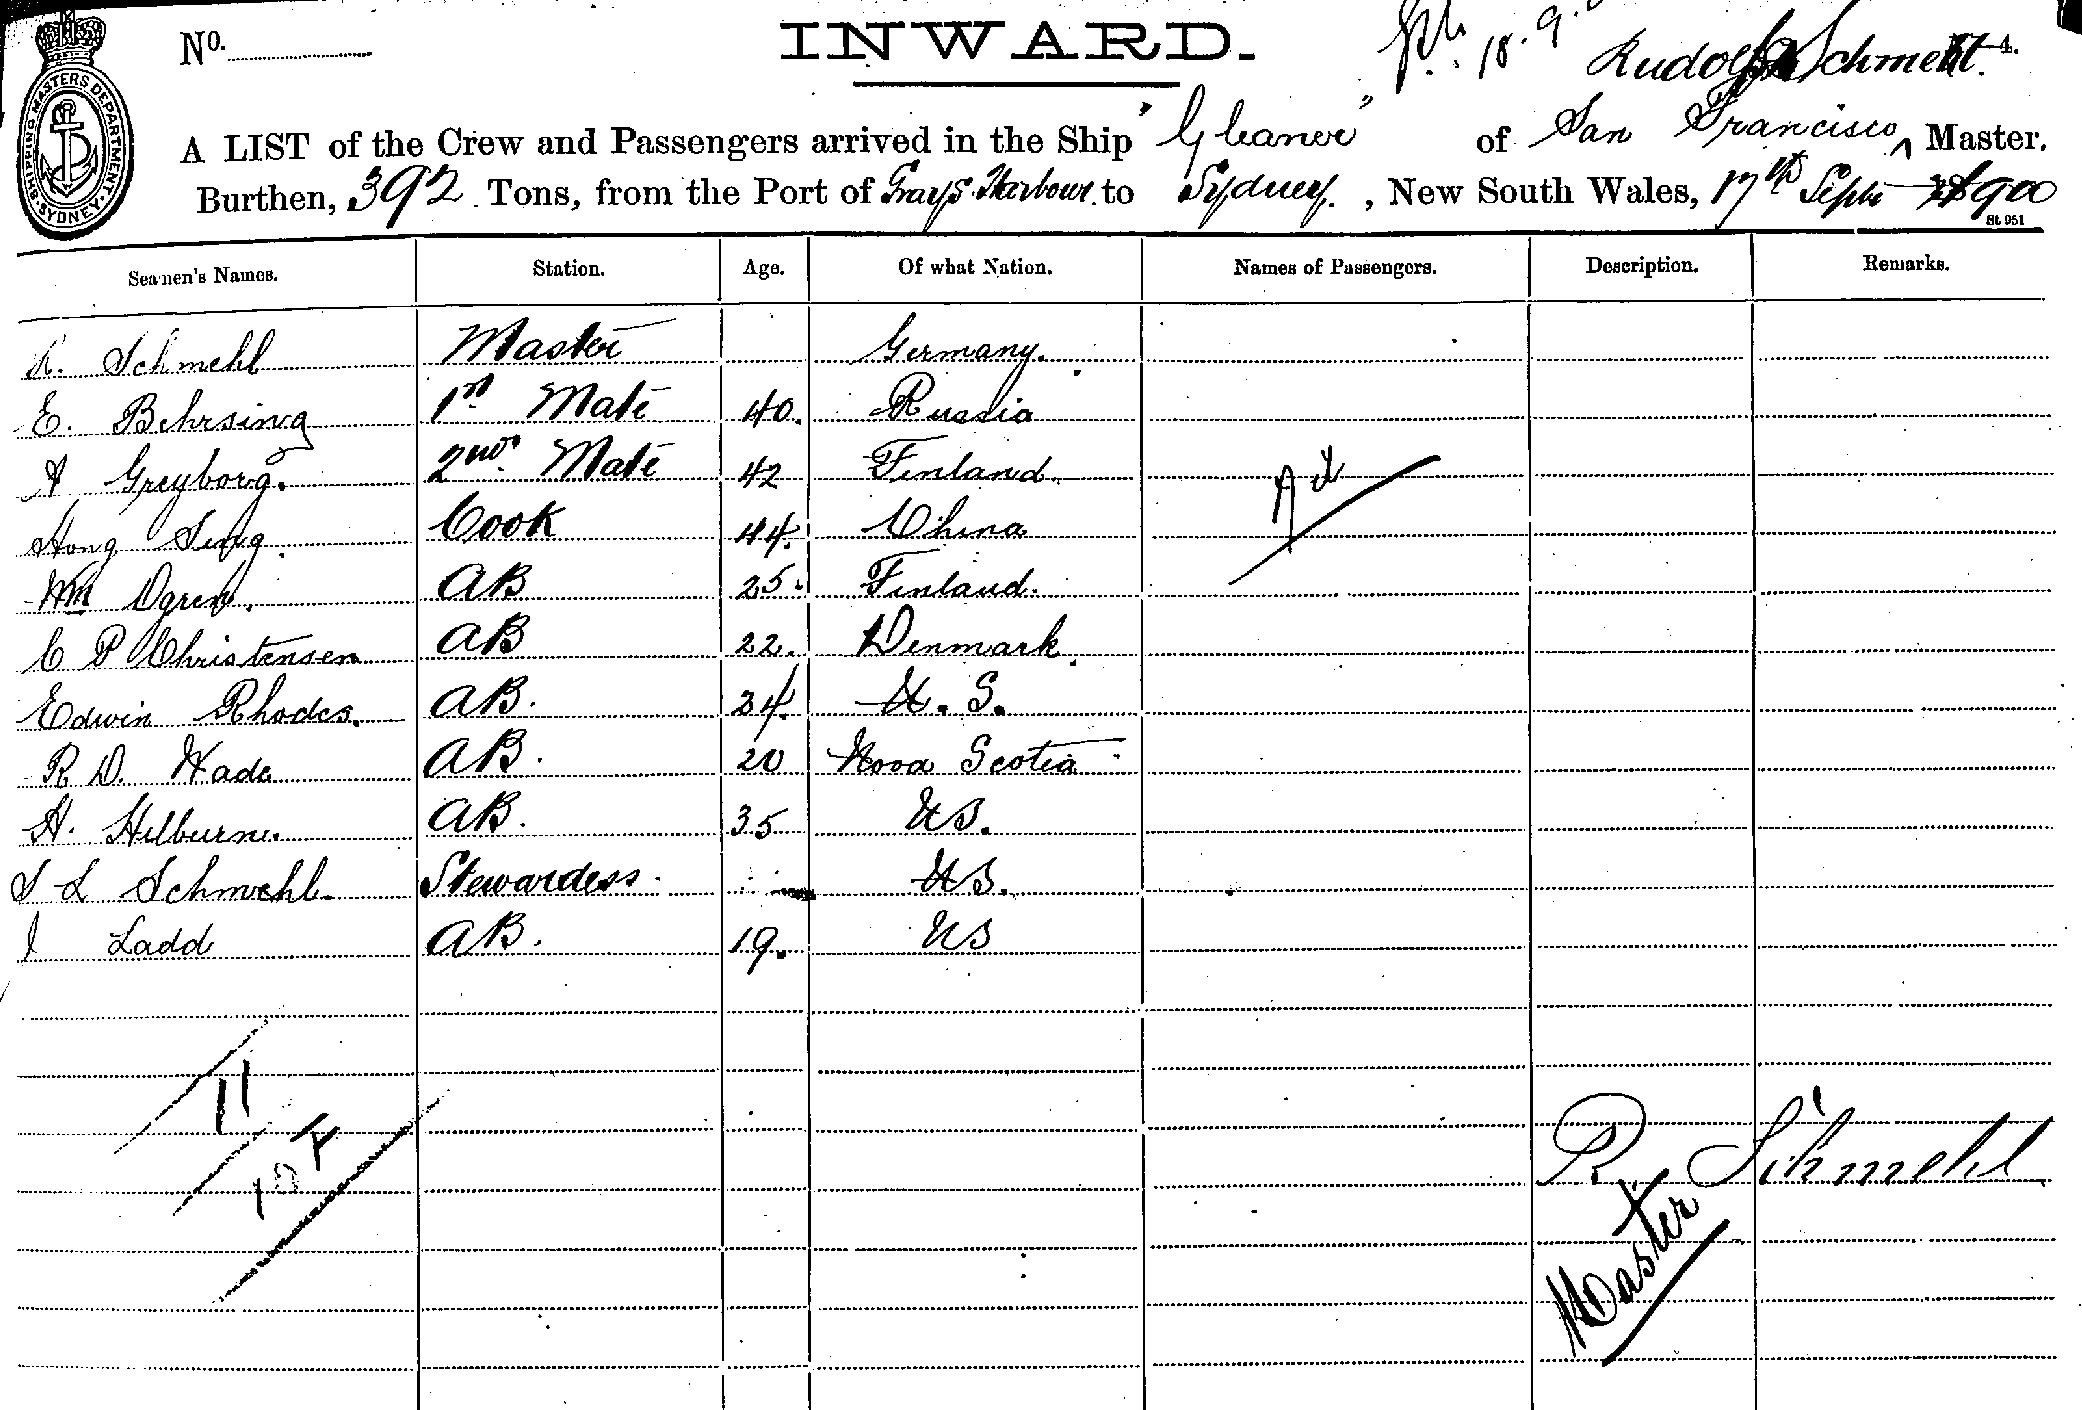 No.
INWARD.
18.9.
Rudolf Schmehl.
SHIPPING MASTERS DEPARTMENT
SYDNEY
A LIST of the Crew and Passengers arrived in the Ship "Gleaner" of San Francisco, Master.
Burthen, 392 Tons, from the Port of Grays Harbour to Sydney, New South Wales, 17th Septr 1900
St 951
Seamen's Names. Station. Age. Of what Nation. Names of Passengers. Description. Remarks.
R. Schmehl Master Germany.
E. Behrsing 1st Mate 40. Russia
A Greyborg. 2nd Mate 42 Finland.
Hong Sing. Cook 44. China
Wm Ogren. AB 25. Finland.
C P Christensen AB 22. Denmark.
Edwin Rhodes. AB. 24. U. S.
R D. Wade AB. 20 Nova Scotia
H. Hilburne. AB. 35 US.
S L Schmehl. Stewardess. US.
J Ladd AB. 19. US
11
R Schmehl
Master